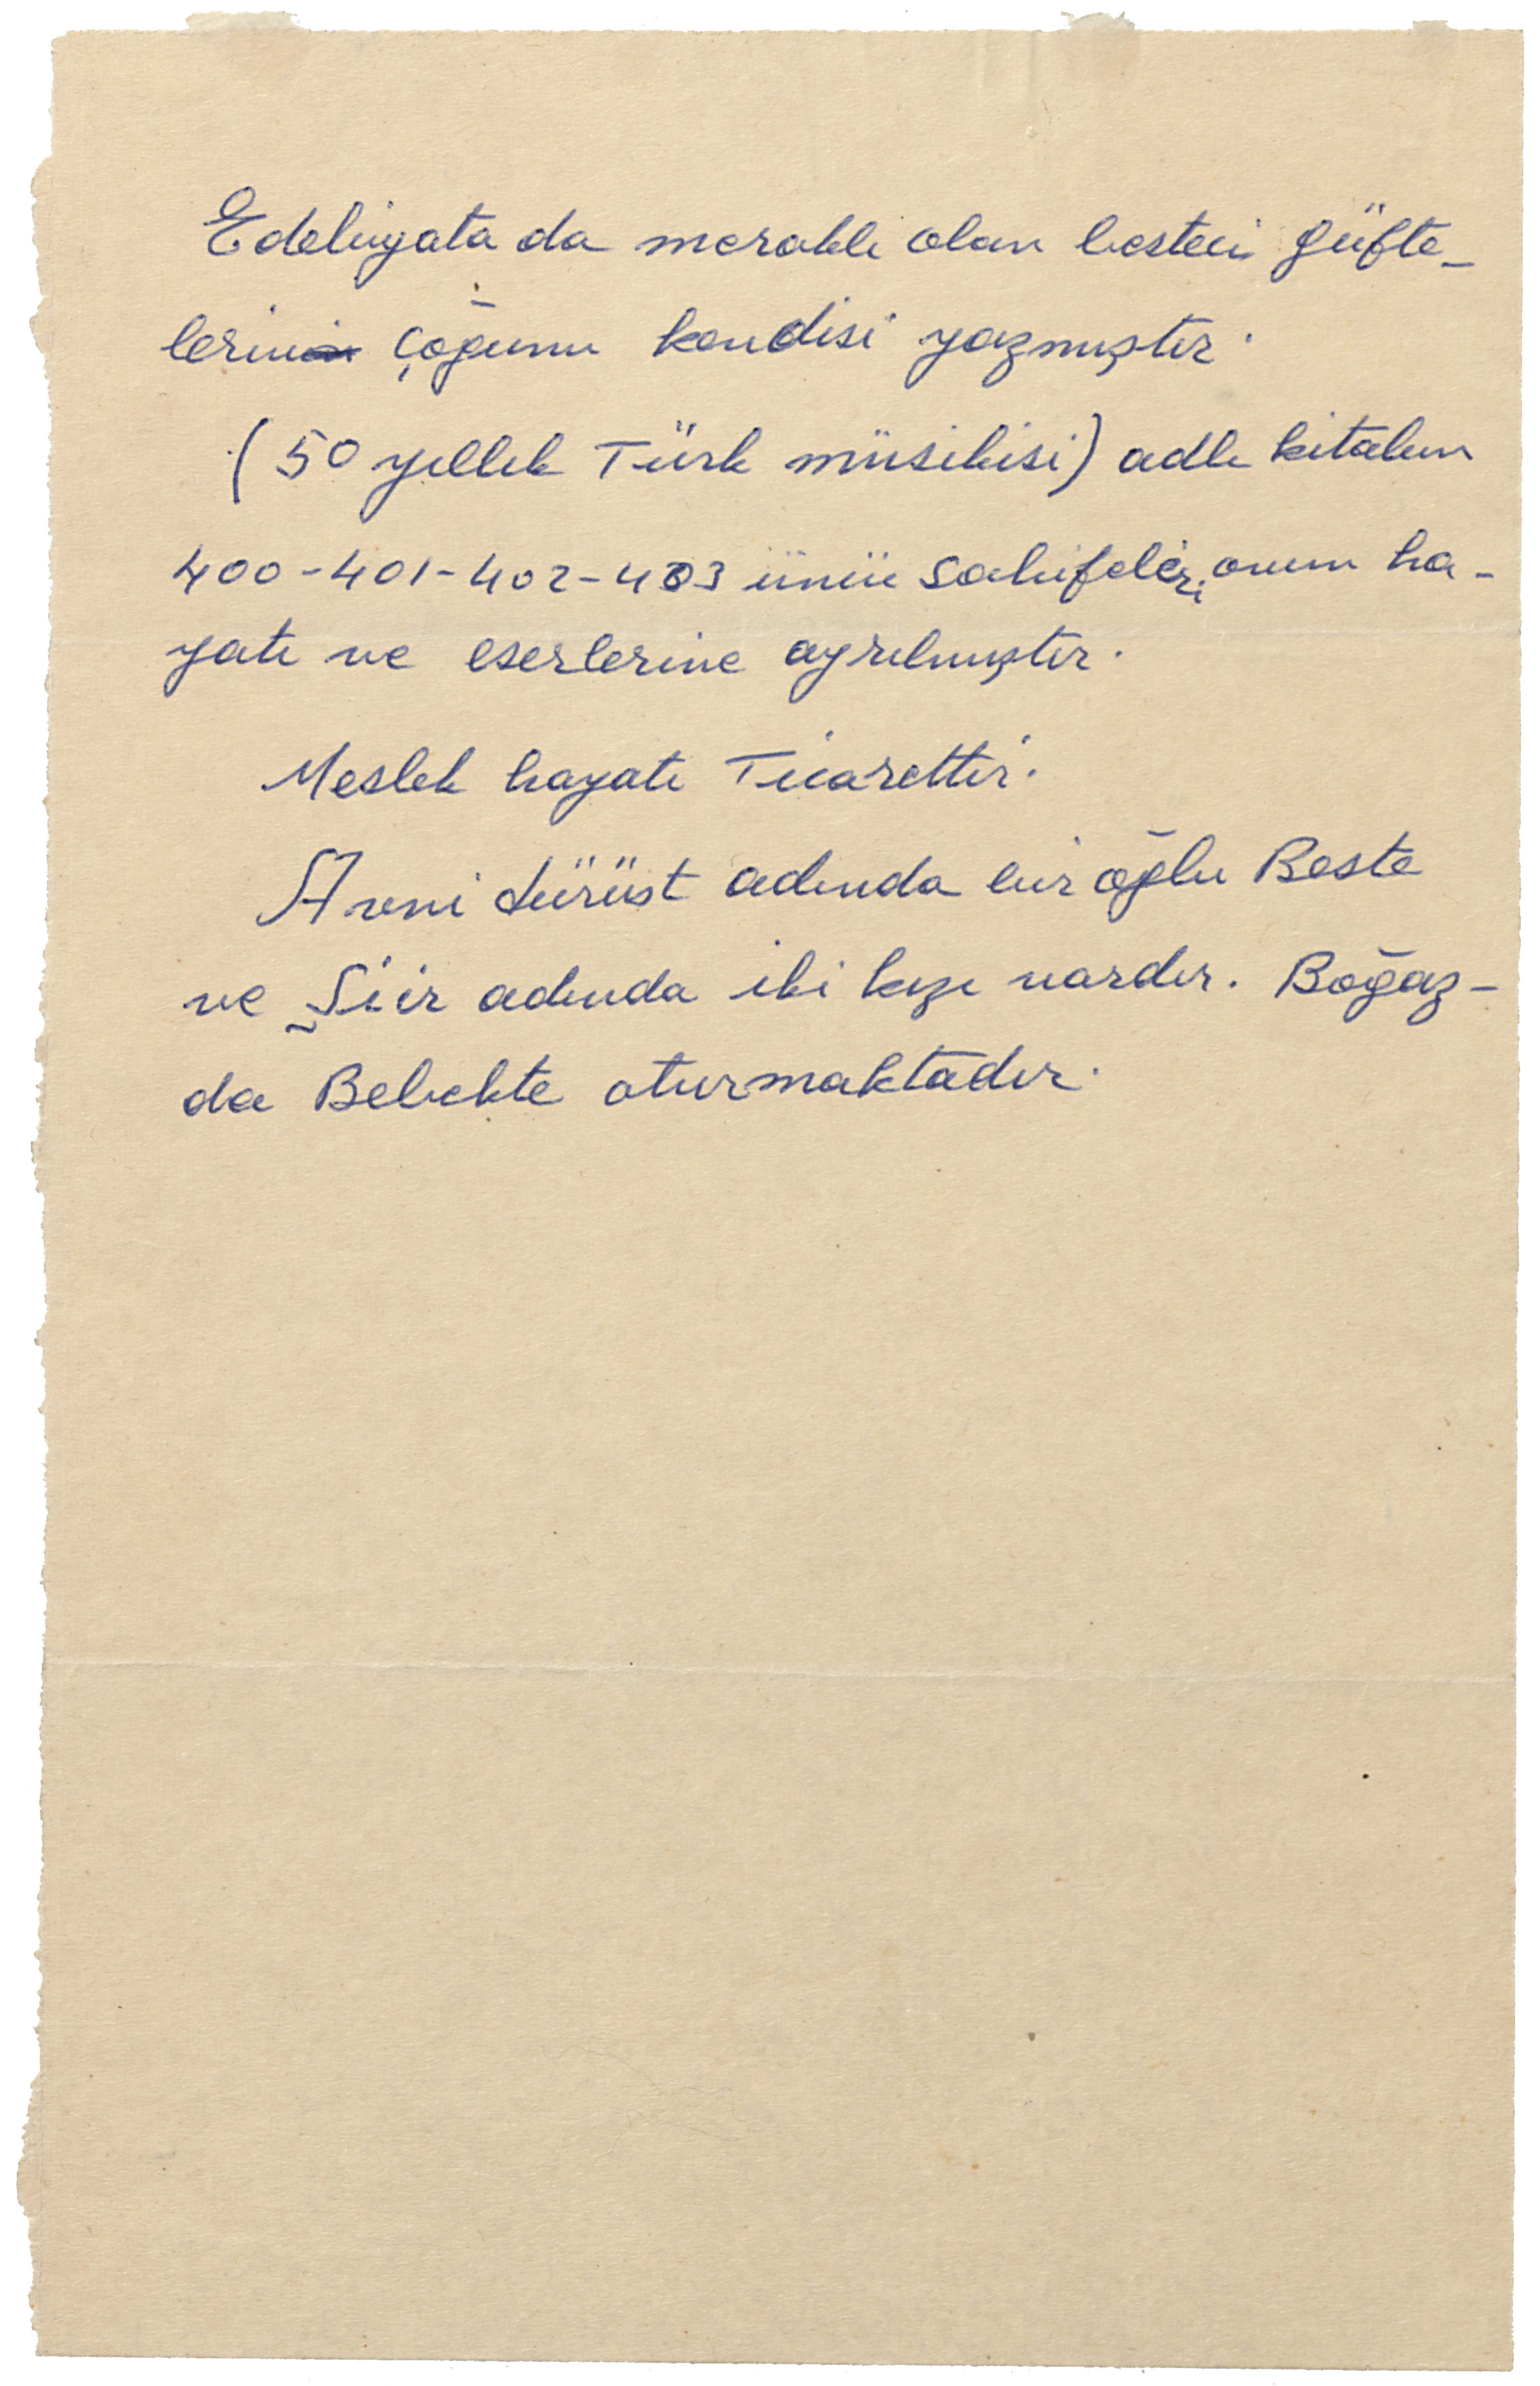 Edebiyata da meraklı olan besteci güfte-
lerinin çoğunu kendisi yazmıştır.
(50 yıllık Türk müsikisi) adlı kitabın
400-401-402-403 üncü sahifeleri onun ha-
yatı ve eserlerine ayrılmıştır.
Meslek hayatı Ticarettir.
Avni dürüst adında bir oğlu Beste
ve Şiir adında iki kızı vardır. Boğaz-
da Bebekte oturmaktadır.